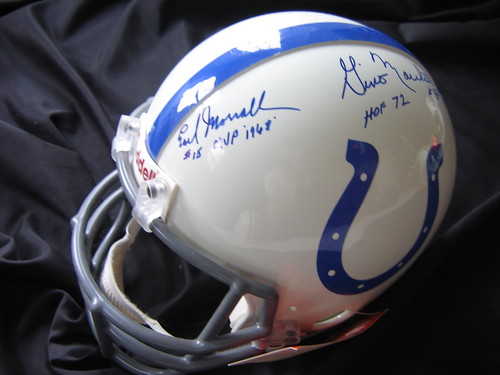 Earl Morrall
#15 MVP '1968'
Gino Marchetti
HOF 72